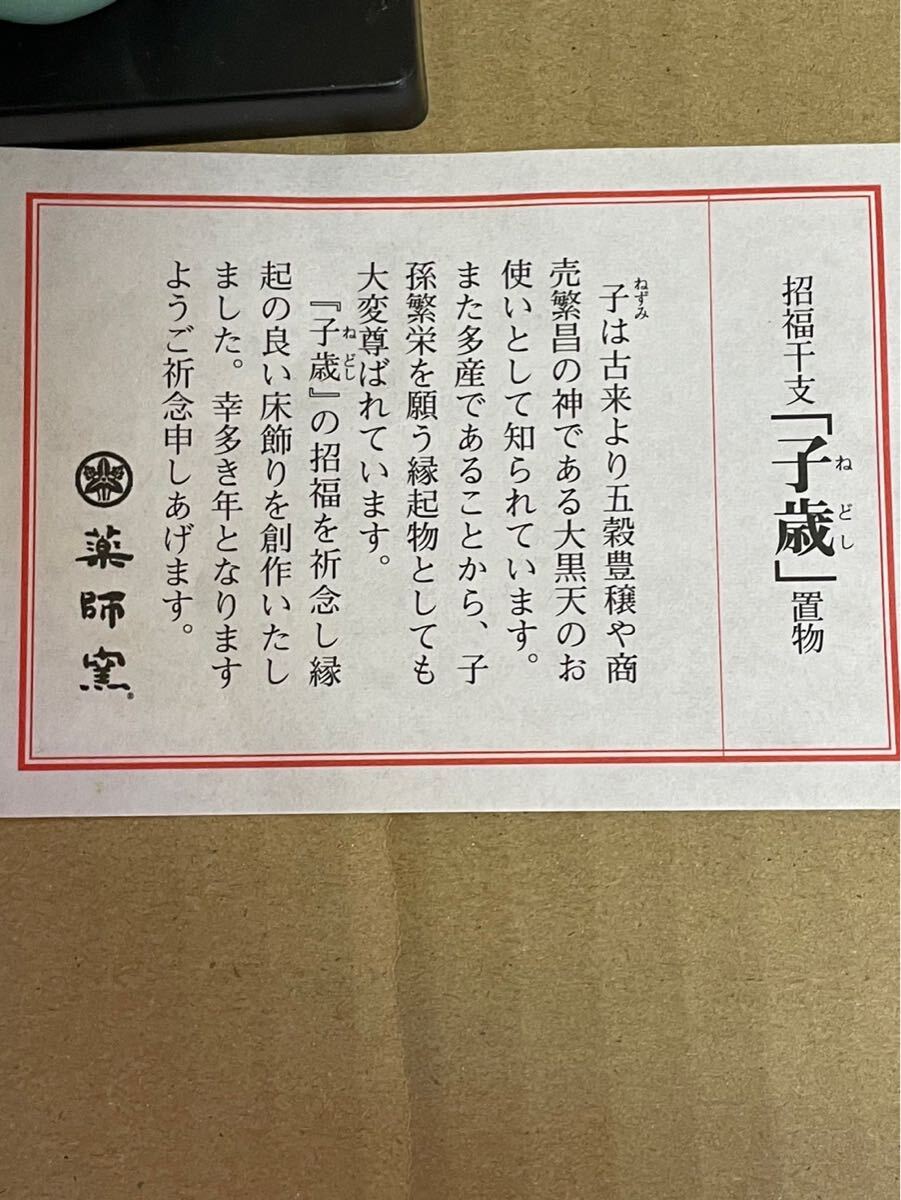 招福干支「子歳」置物
ねどし
子は古来より五穀豊穣や商
ねずみ
売繁昌の神である大黒天のお
使いとして知られています。
また多産であることから、子
孫繁栄を願う縁起物としても
大変尊ばれています。
『子歳』の招福を祈念し縁
ねどし
起の良い床飾りを創作いたし
ました。幸多き年となります
ようご祈念申しあげます。
薬師窯®